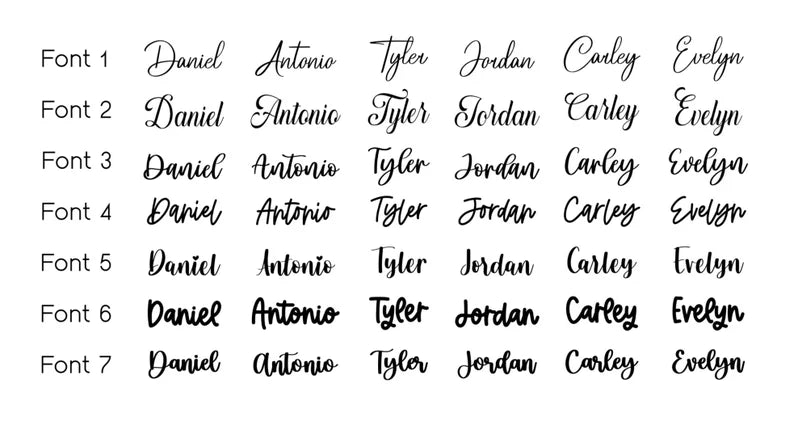 Font 1 Daniel Antonio Tyler Jordan Carley Evelyn
Font 2 Daniel Antonio Tyler Jordan Carley Evelyn
Font 3 Daniel Antonio Tyler Jordan Carley Evelyn
Font 4 Daniel Antonio Tyler Jordan Carley Evelyn
Font 5 Daniel Antonio Tyler Jordan Carley Evelyn
Font 6 Daniel Antonio Tyler Jordan Carley Evelyn
Font 7 Daniel Antonio Tyler Jordan Carley Evelyn